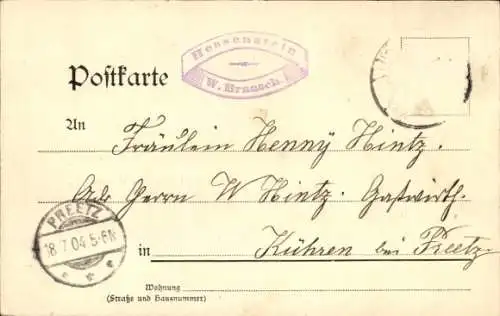 Hessenstein
W. Braasch
Postkarte
An
Fräulein Henny Hintz.
Adr Herrn W Hintz. Gastwirth.
PREETZ
18.7.04.5-6N
in Kühren bei Preetz
Wohnung
(Straße und Hausnummer)